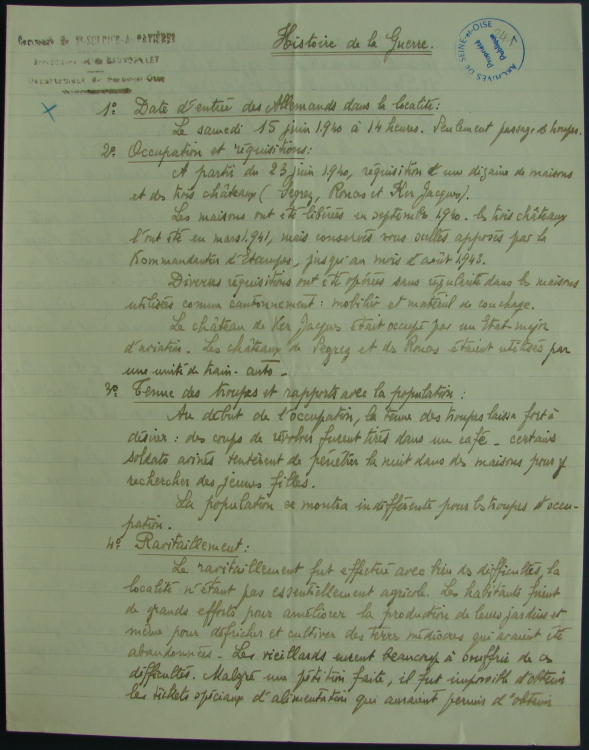 Histoire de la Guerre.
ARCHIVES DE SEINE-et-OISE
Propriété
Publique
Commune de St SULPICE-de-FAVIÈRES
Arrondissement de RAMBOUILLET
Département de Seine-et-Oise
1° Date d'entrée des Allemands dans la localité:
Le samedi 15 juin 1940 à 14 heures. Seulement passage de troupes.
2° Occupation et réquisitions:
A partir du 23 juin 1940, réquisition d'une dizaine de maisons
et des trois châteaux (Segrez, Rouas et Ker Jacques).
Les maisons ont été libérées en septembre 1940. Les trois châteaux
l'ont été en mars 1941, mais conservés sous scellés apposés par la
Kommandantur d'Etampes, jusqu'au mois d'août 1943.
Diverses réquisitions ont été opérées sans régularité dans les maisons
utilisées comme cantonnement: mobilier et matériel de couchage.
Le château de Ker Jacques était occupé par un Etat-major
d'aviation. Les châteaux de Segrez et de Rouas étaient utilisés par
une unité de train-auto.
3° Tenue des troupes et rapports avec la population:
Au début de l'occupation, la tenue des troupes laissa fort à
désirer: des coups de révolver furent tirés dans un café - certains
soldats avinés tentèrent de pénétrer la nuit dans des maisons pour y
rechercher des jeunes filles.
La population se montra indifférente pour les troupes d'occu-
pation.
4° Ravitaillement:
Le ravitaillement fut effectué avec bien des difficultés, la
localité n'étant pas essentiellement agricole. Les habitants firent
de grands efforts pour améliorer la production de leurs jardins et
même pour défricher et cultiver des terres médiocres qui avaient été
abandonnées. Les vieillards eurent beaucoup à souffrir de ces
difficultés. Malgré une pétition faite, il fut impossible d'obtenir
les tickets spéciaux d'alimentation qui auraient permis d'obtenir